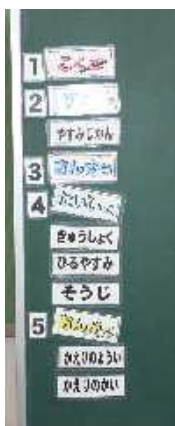 1 こくご
2
やすみじかん
3 さんすう
4
きゅうしょく
ひるやすみ
そうじ
5
かえりのようい
かえりのかい